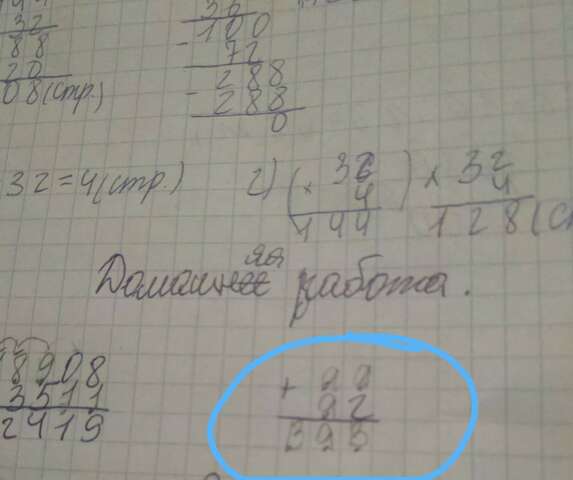 32
88
20
08(стр.)
36
- 100
72
- 288
288
0
32=4(стр.)
2) (× 36
4)
144
× 32
4
128(с
Домашняя работа.
18908
3511
2419
+